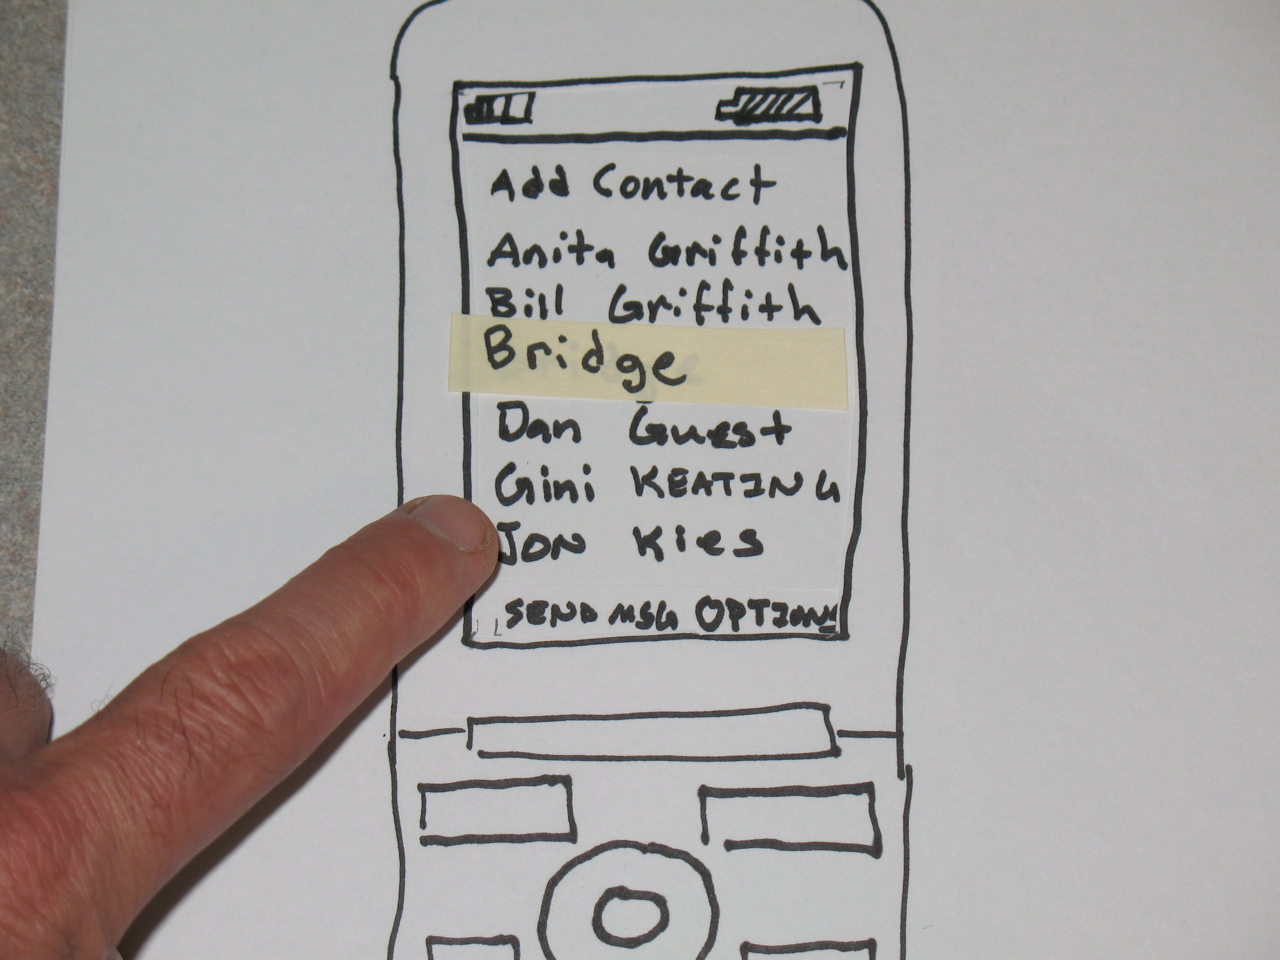 Add Contact
Anita Griffith
Bill Griffith
Bridge
Dan Guest
Gini KEATING
JON Kies
SEND MSG OPTIONS